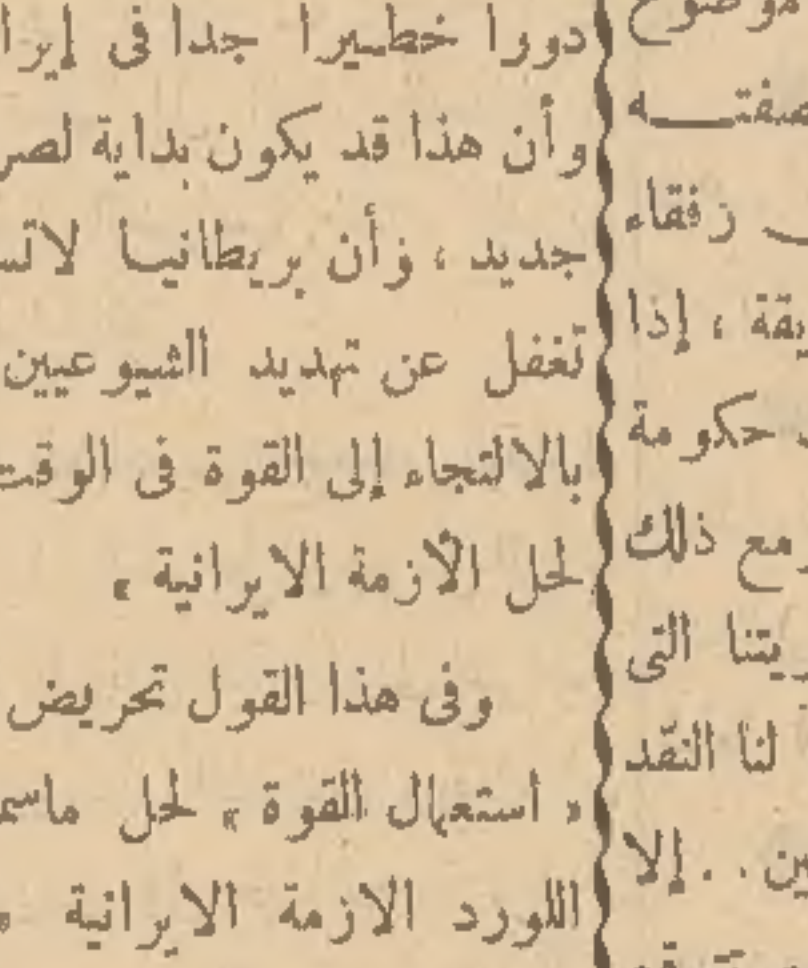 موضوع
زفقاء
، إذا
حكومة
ومع ذلك
التى
لنا النقد
. . إلا
دورا خطيرا جدا فى
وأن هذا قد يكون بداية
جديد ، وأن بريطانيا
تغفل عن تهديد الشيوعيين
بالالتجاء إلى القوة فى الوقت
لحل الأزمة الايرانية »
وفى هذا القول تحريض
« استعمال القوة » لحل
اللورد الازمة الايرانية